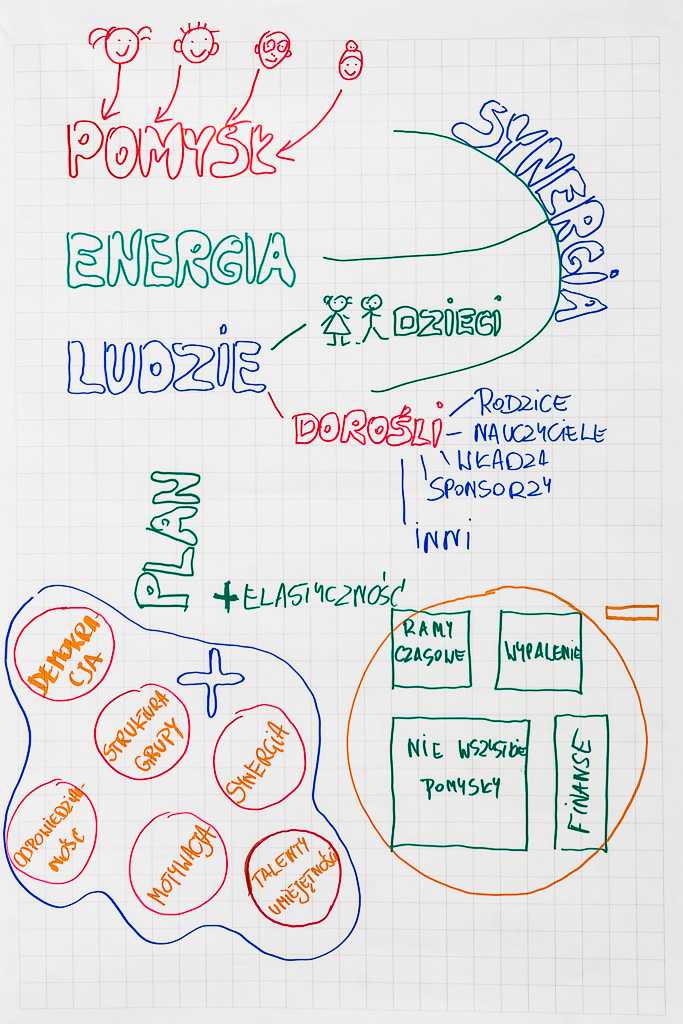 POMYSŁ
SYNERGIA
ENERGIA
DZIECI
LUDZIE
DOROŚLI
RODZICE
NAUCZYCIELE
WŁADZA
SPONSORZY
INNI
PLAN
+ ELASTYCZNOŚĆ
+
DEMOKRA
CJA
STRUKTURA
GRUPY
SYNERGIA
ODPOWIEDZIAL
NOŚĆ
MOTYWACJA
TALENTY
UMIEJĘTNOŚCI
RAMY
CZASOWE
WYPALENIE
NIE WSZYSTKIE
POMYSŁY
FINANSE